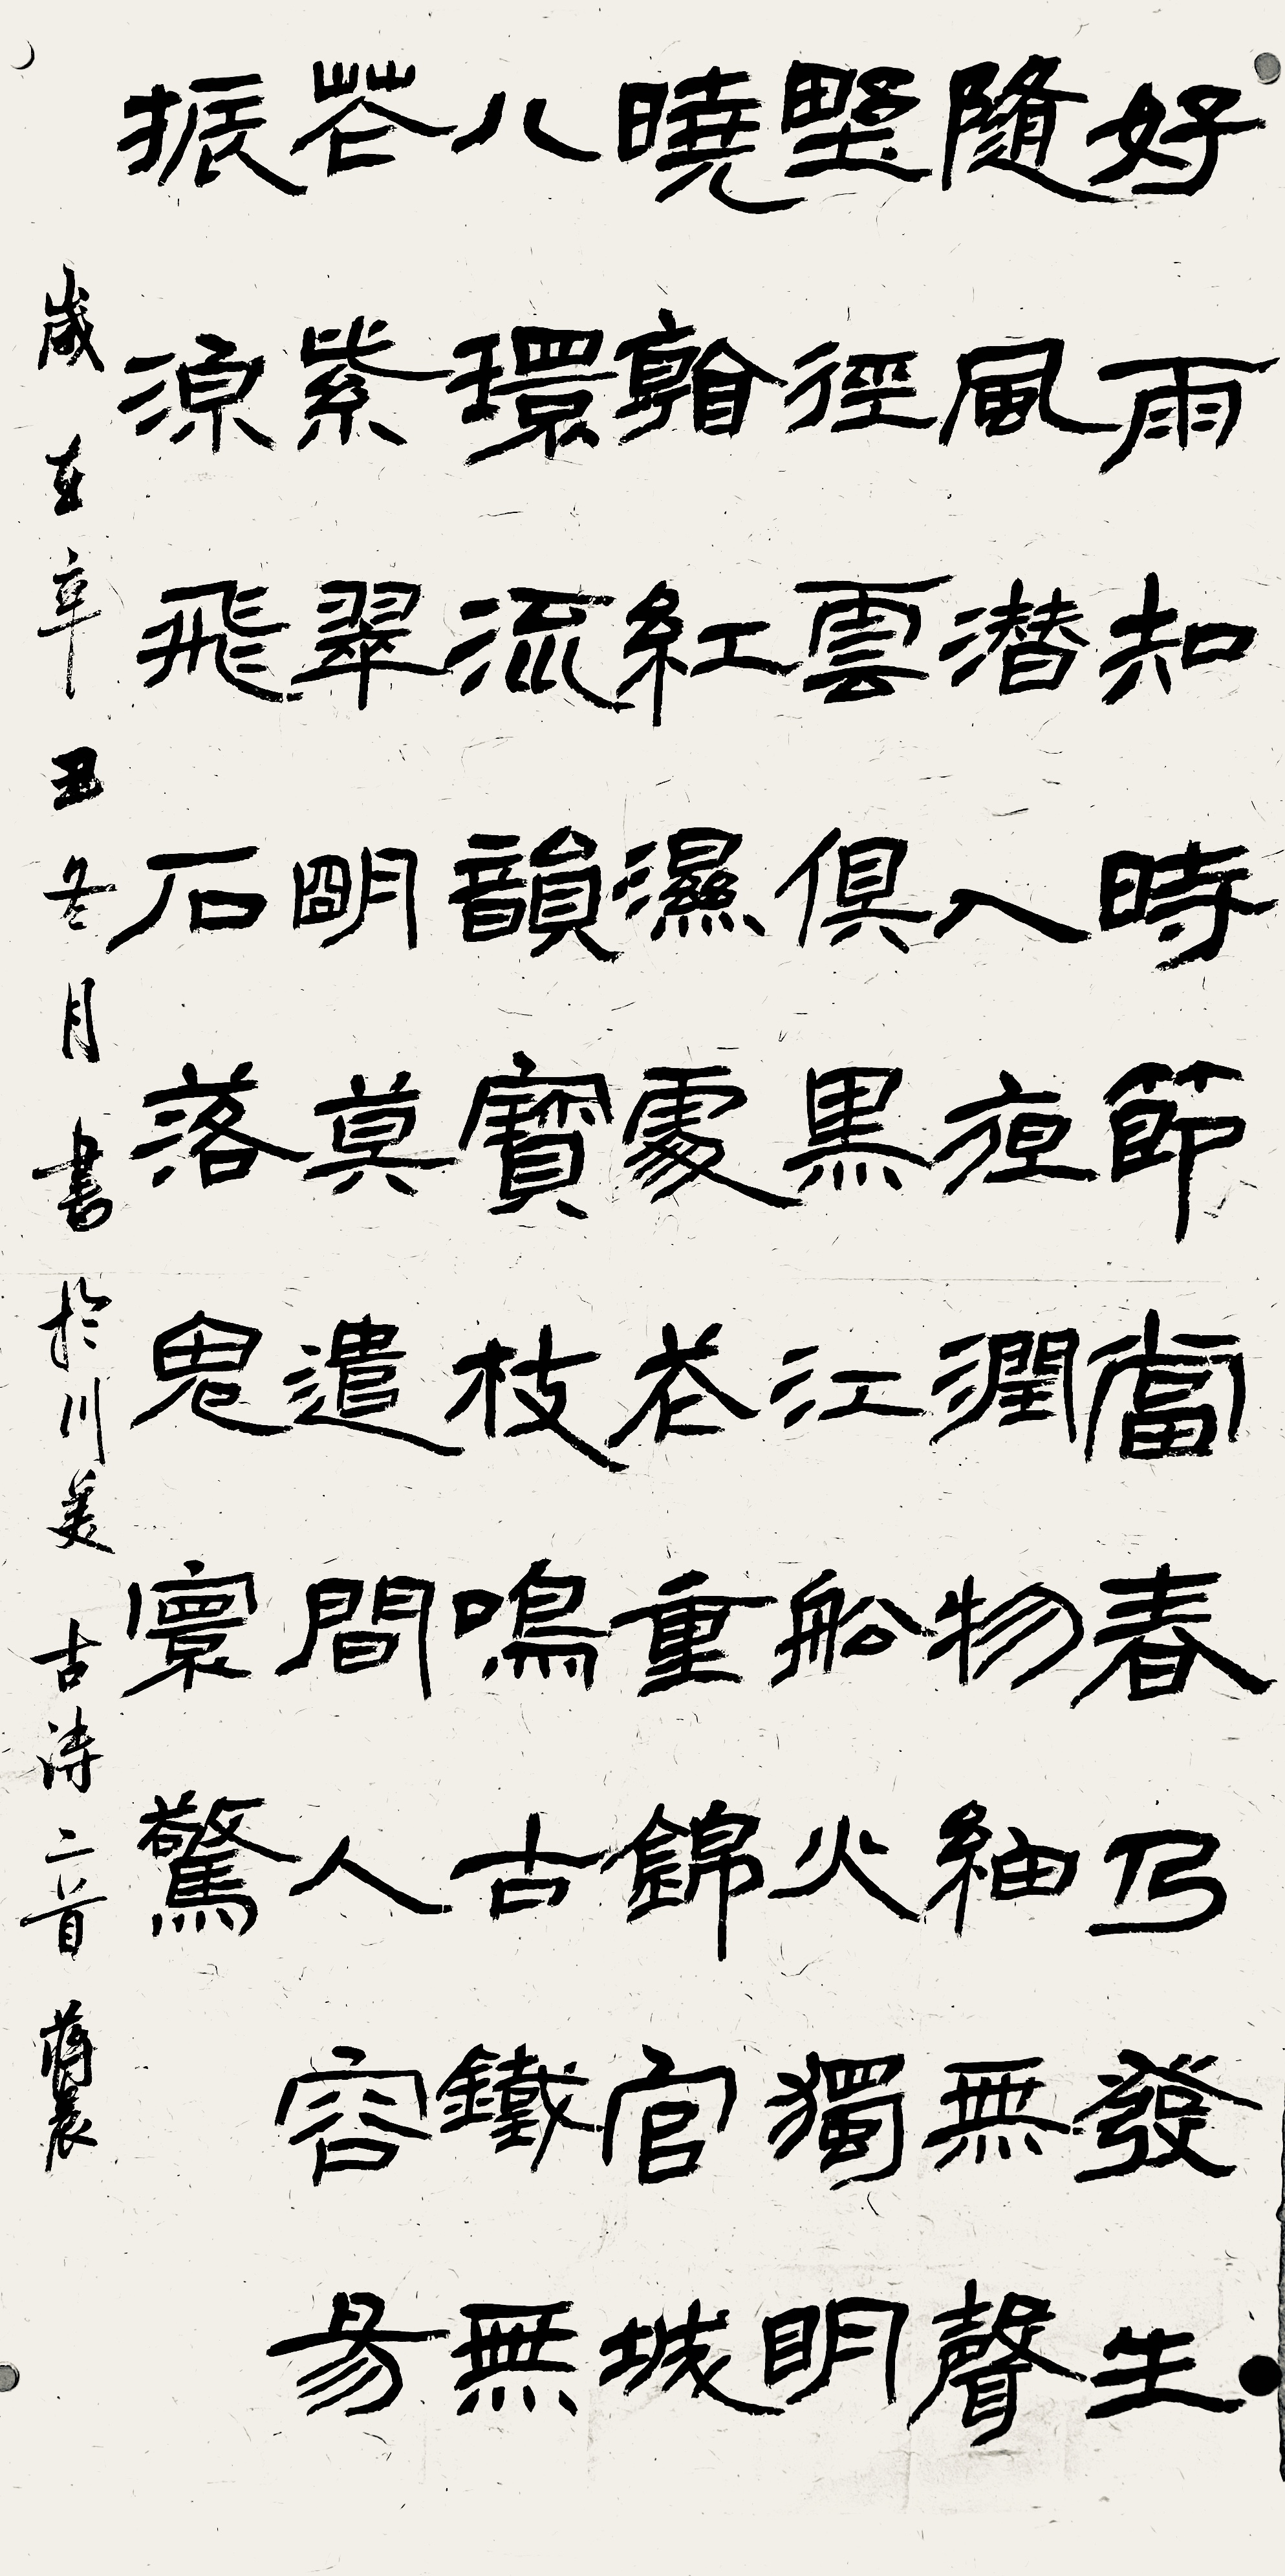 好雨知時節當春乃發生
隨風潜入夜潤物細無聲
野徑雲俱黑江船火獨明
曉看紅濕處花重錦官城
八環流韻寶枝鳴古鐵無
花紫翠明莫遣間人容易
振源飛石落鬼寰驚
歲在辛丑冬月書於川美古詩二首蔣晨